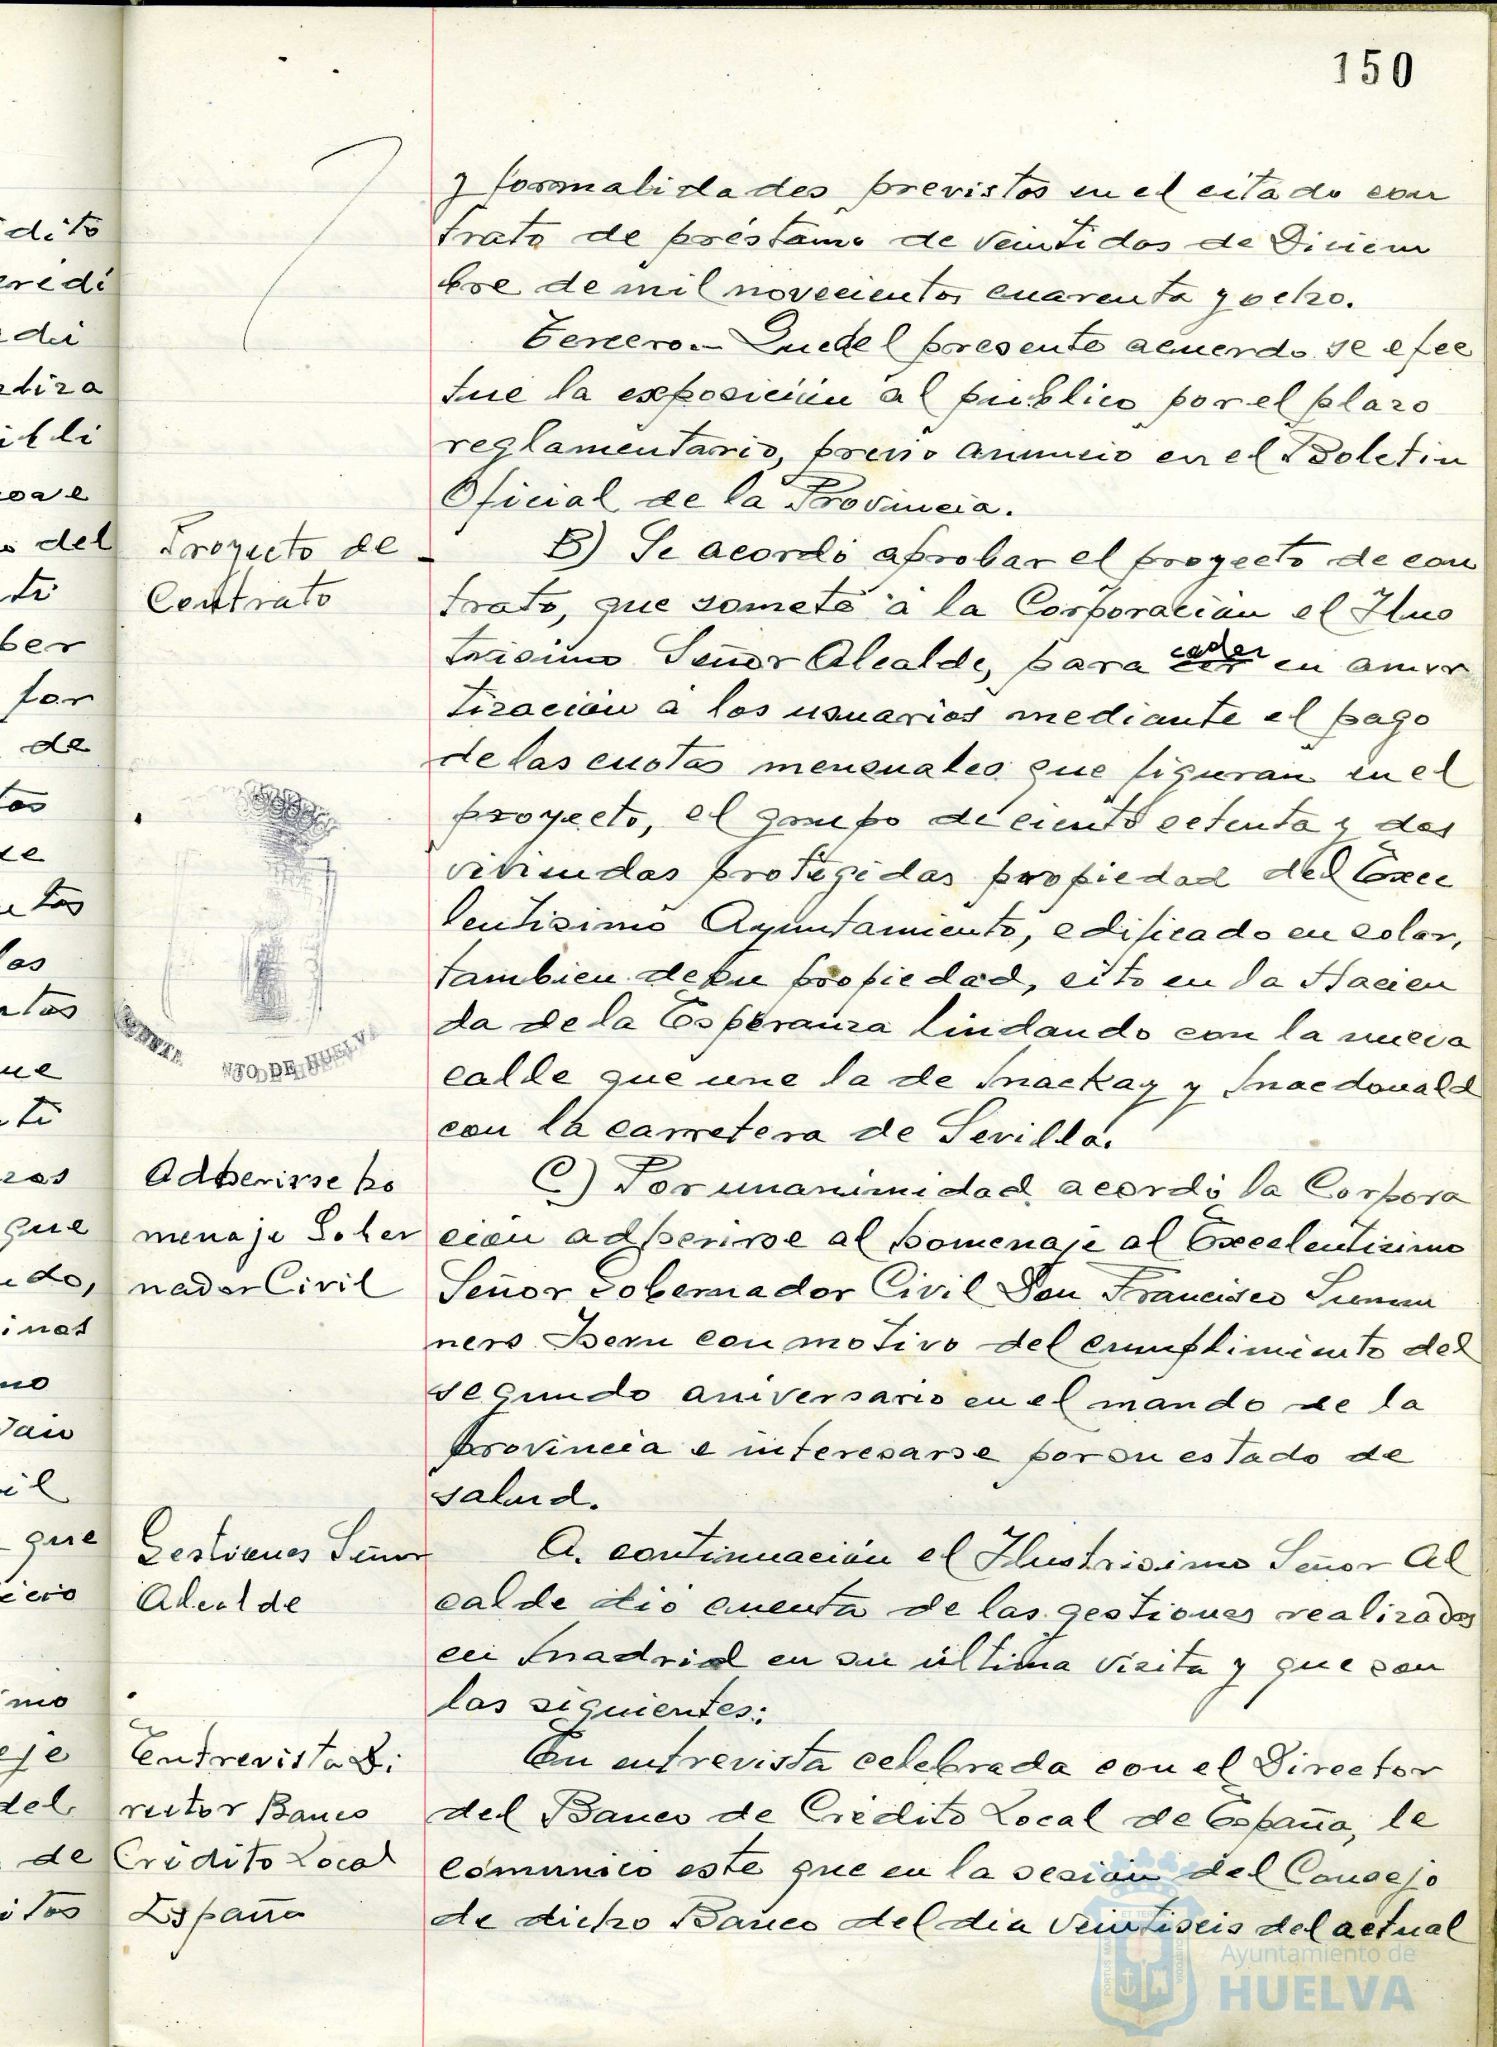 150
y formalidades previstos en el citado con
trato de préstamo de veintidos de Diciem
bre de mil novecientos cuarenta y ocho.
Tercero.- Que del presente acuerdo se efec
tue la exposición al publico por el plazo
reglamentario, previo anuncio en el Boletin
Oficial de la Provincia.
Proyecto de
Contrato
B) Se acordó aprobar el proyecto de con
trato, que somete a la Corporación el Ilus
trisimo Señor Alcalde, para ceder en amor
tización a los usuarios mediante el pago
de las cuotas mensuales que figuran en el
proyecto, el grupo de ciento setenta y dos
viviendas protegidas propiedad del Exce
lentisimo Ayuntamiento, edificado en solar,
tambien de su propiedad, sito en la Hacien
da de la Esperanza lindando con la nueva
calle que une la de Mackay y Macdonald
con la carretera de Sevilla.
NTO DE HUELVA
Adherirse ho
menaje Gober
nador Civil
C) Por unanimidad acordó la Corpora
ción adherirse al homenaje al Excelentisimo
Señor Gobernador Civil Don Francisco Summ
ners Isern con motivo del cumplimiento del
segundo aniversario en el mando de la
provincia e interesarse por su estado de
salud.
Gestiones Señor
Alcalde
A continuación el Ilustrisimo Señor Al
calde dió cuenta de las gestiones realizadas
en Madrid en su última visita y que son
las siguientes:
Entrevista Di
rector Banco
Crédito Local
España
En entrevista celebrada con el Director
del Banco de Crédito Local de España, le
comunicó este que en la sesión del Consejo
de dicho Banco del dia veintiseis del actual
Ayuntamiento de
HUELVA